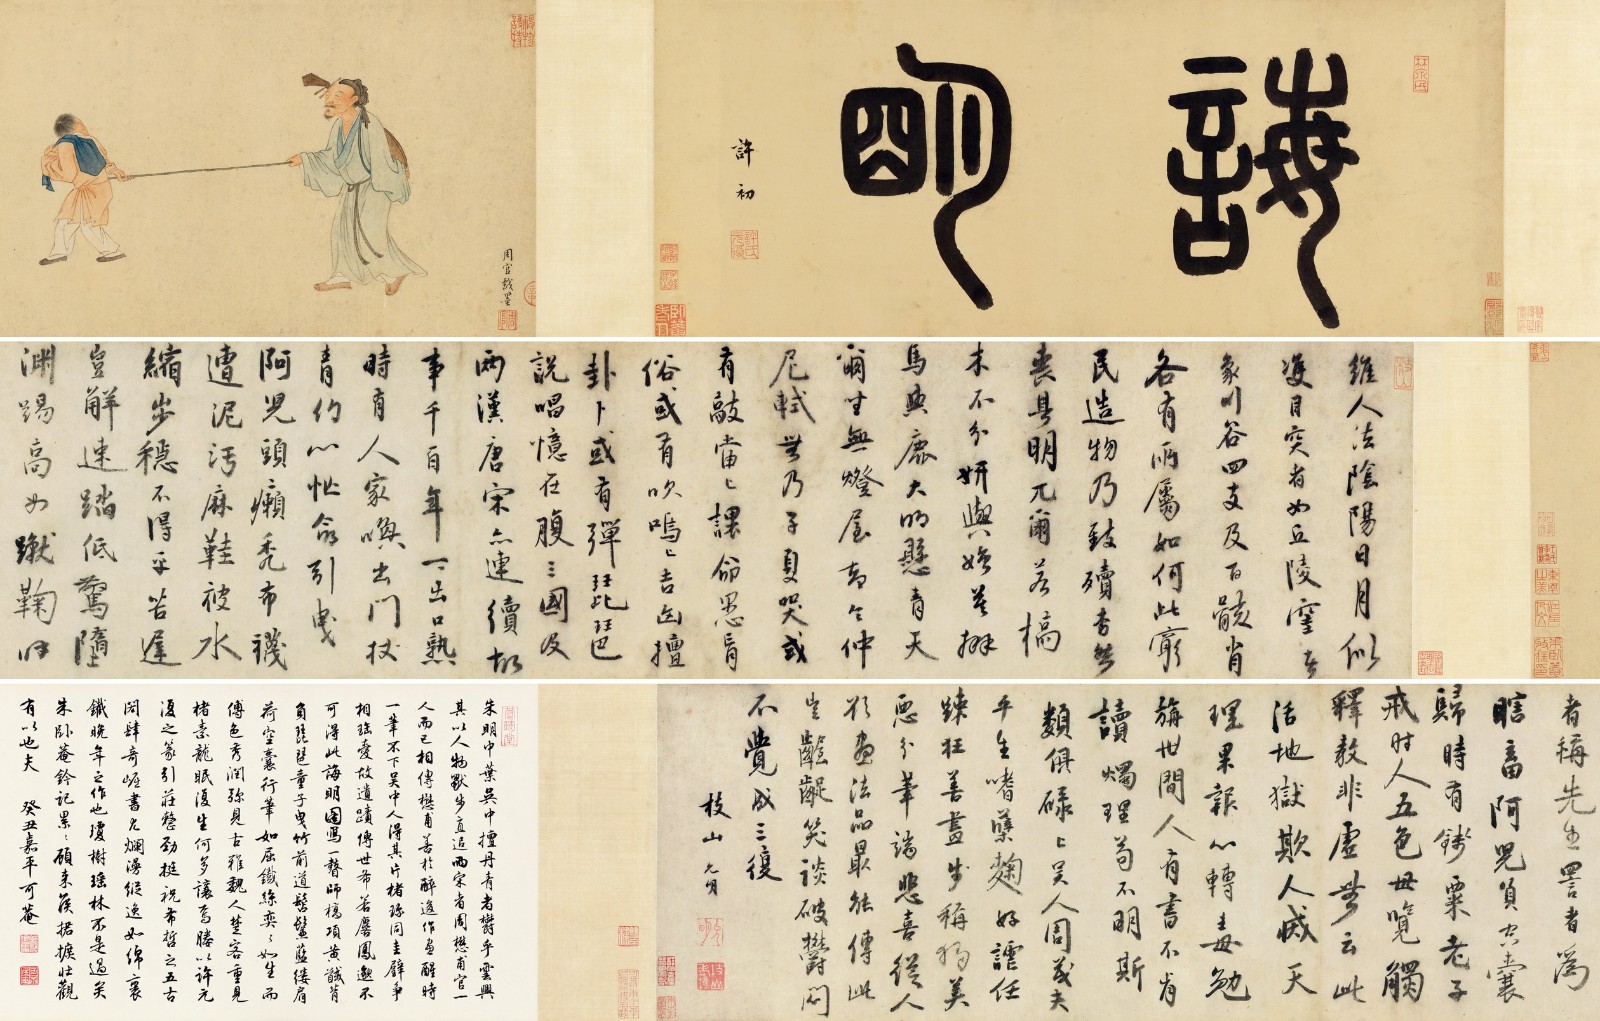 誨明
許初
周官戲墨
維人法陰陽日月似
雙目突者如丘陵窪者
象川谷四支及百骸肖
各有所屬如何此窮
民造物乃致殰
喪具明兀爾若槁
木不分妍與媸莫辨
馬與鹿大明懸青天
爾坐無燈屋
尼軾無乃子夏哭或
有敲當當課命愚盲
俗或有吹嗚嗚吉凶擅
卦卜或有彈琵琶
說唱憶在腹三國及
兩漢唐宋亦連續故
事千百年一一出口熟
時有人家喚出門杖
青竹心忙命引曳
阿兒頭癩禿布襪
遭泥污麻鞋被水
縮步穩不得平苦遲
豈解速踏低驚墮
淵踢高如蹴鞠
者稱先生詈者為
瞎畜阿兒負空囊
歸時有錢粟老子
戒時人五色毋覽觸
釋教非虛無云此
活地獄欺人滅天
理果報心轉毒勉
旃世間人有書不肯
讀燭理苟不明斯
類俱碌碌吳人周茂夫
平生嗜糵麴好謔任
疎狂善畫時稱獨美
惡分筆端悲喜從人
欲畫法品最能傳此
豈齷齪笑談破鬱悶
不覺成三復
枝山允明
朱明中葉吳中擅丹青者鬱乎雲興
其以人物獸步直追兩宋者周懋甫官一
人而已相傳懋甫善於醉後作畫醒時
一筆不下吳中人得其片楮珍同圭璧爭
相瑤愛故遺蹟傳世希若麐鳳邈不
可得此誨明圖寫一瞽師槁項黃馘肩
負琵琶童子曳竹前道髻鬟藍縷肩
荷空囊行筆如屈鐵絲奕奕如生而
傅色秀潤彌見古雅魏人楚客重見
楮素龍眠復生何多讓焉勝以許元
復之篆引莊整勁挺祝希哲之五古
閎肆奇崛書尤爛漫縱逸如綿裹
鐵晚年之作也瓊樹瑤林不是過矣
朱臥菴鈐記累累頎来矦捃摭壯觀
有以也夫　癸丑嘉平可菴